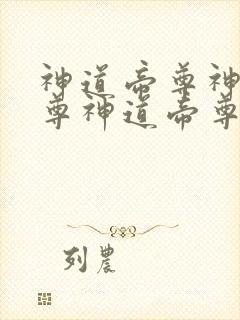 神道帝尊神
尊神道帝尊
列農